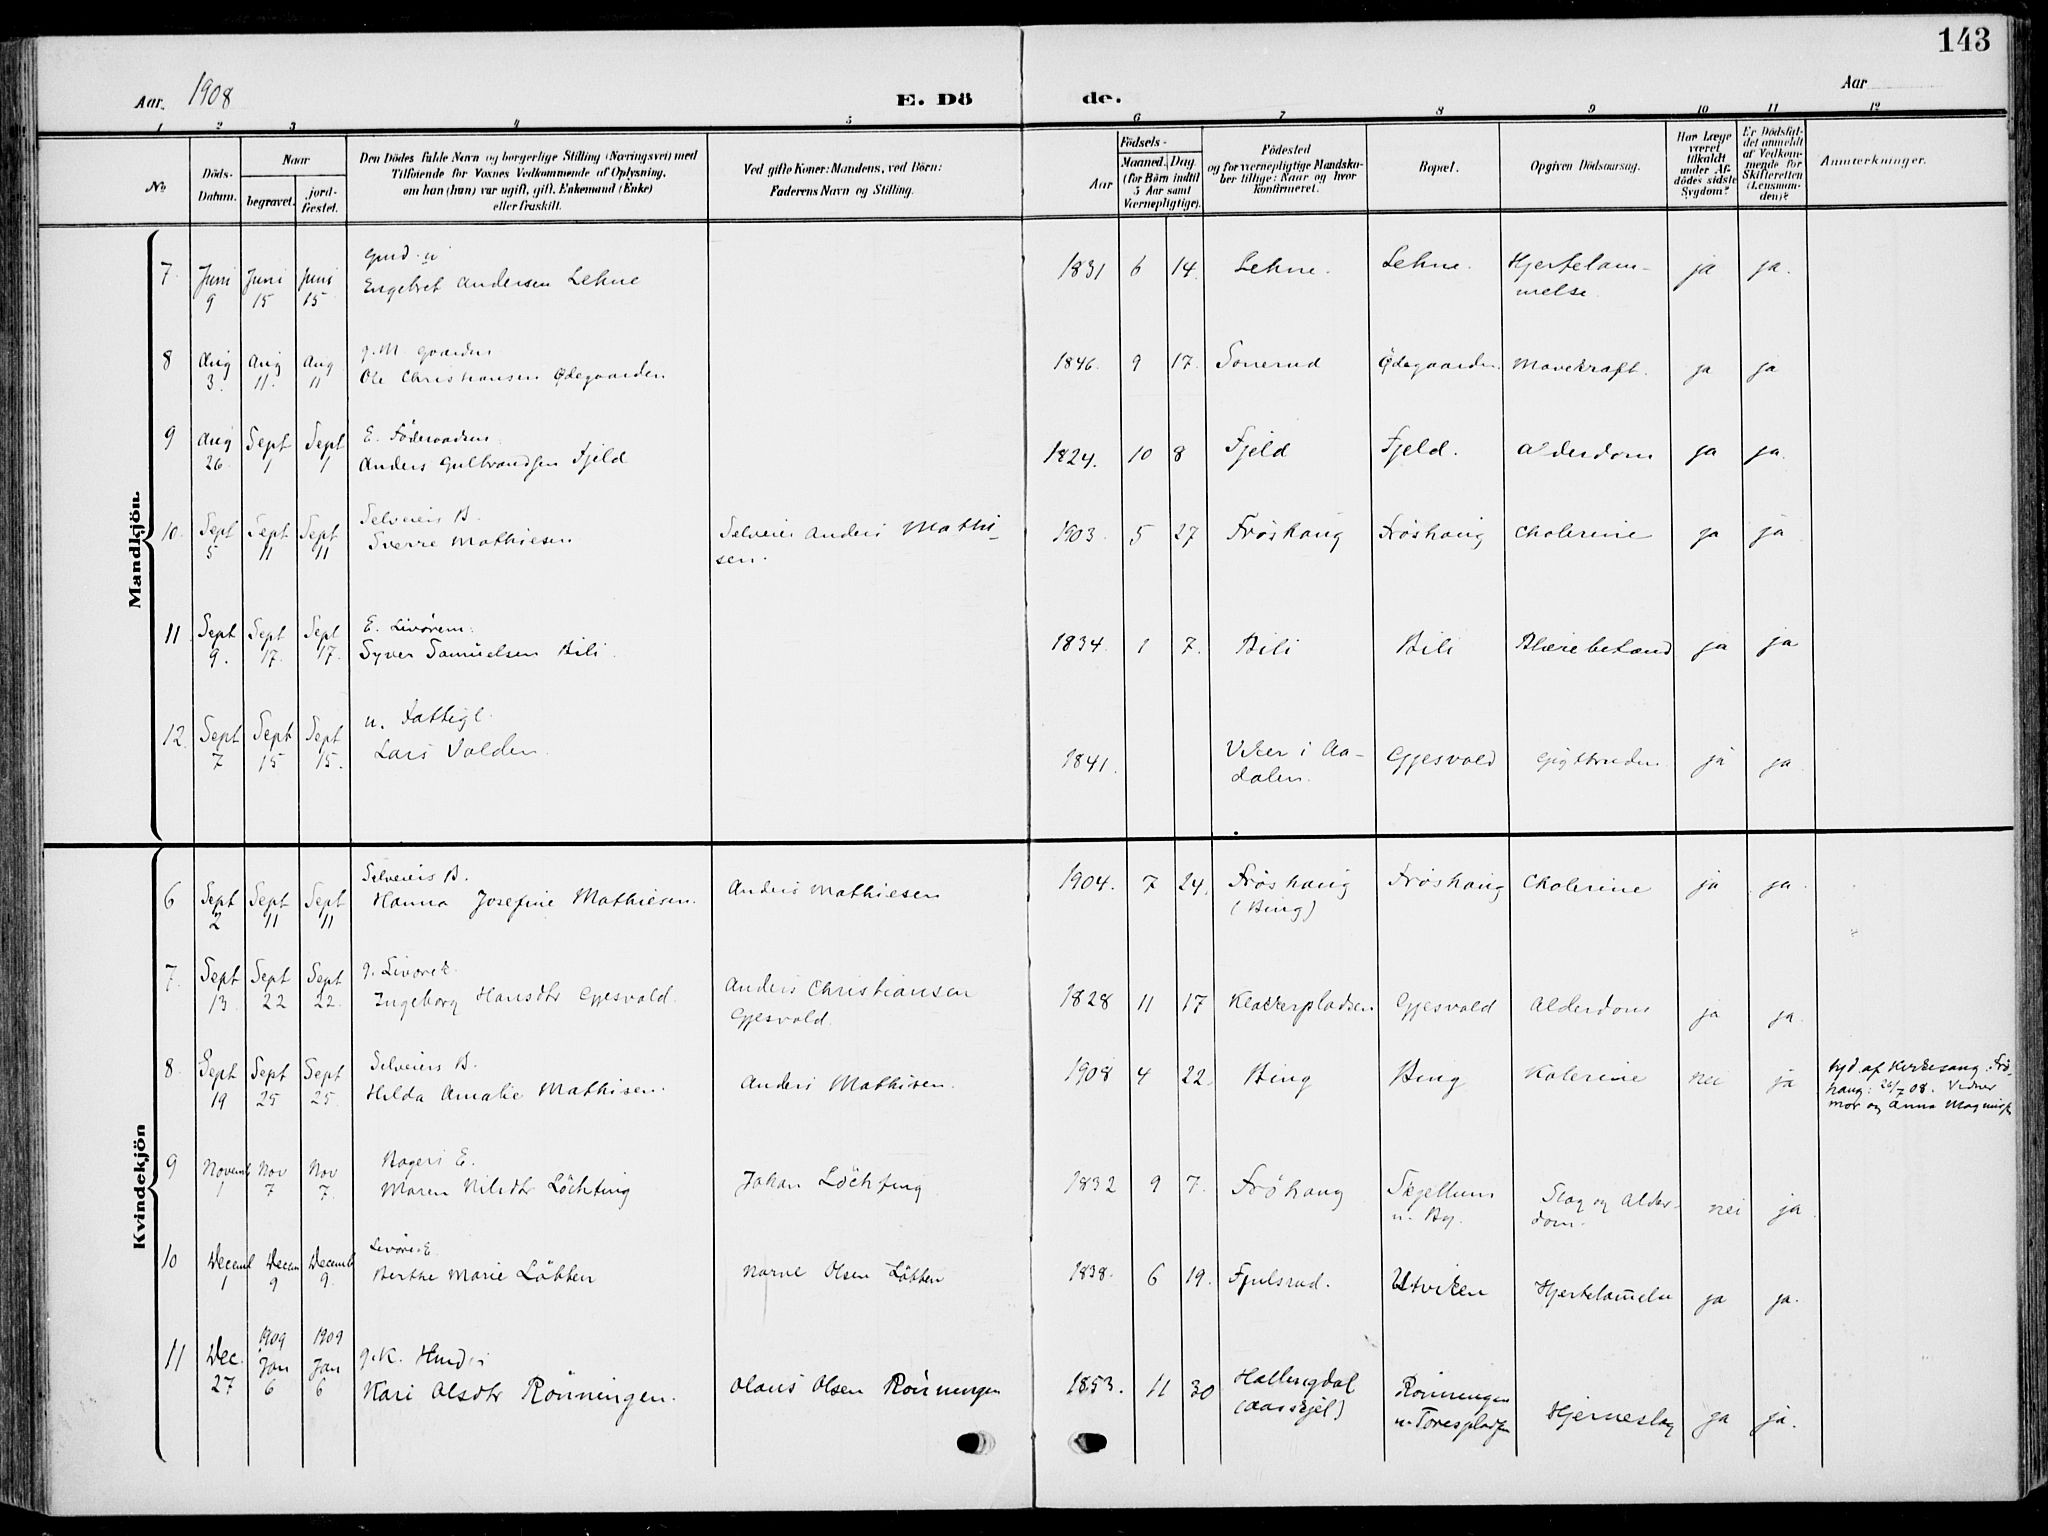 143
Aar. 1908
E. Dö de.
Aar
1 2 3 4 5 6 7 8 9 10 11 12
No.
Döds-Datum.
Naar
begravet.
jord-fæstet.
Den Dödes fulde Navn og borgerlige Stilling (Næringsvei) med
Tilföiende for Voxnes Vedkommende af Oplysning,
om han (hun) var ugift, gift, Enkemand (Enke)
eller fraskilt.
Ved gifte Koner: Mandens, ved Börn:
Faderens Navn og Stilling.
Födsels-
Aar
Maaned. Dag
(for Börn indtil
5 Aar samt
Værnepligtige).
Födested
og for værnepligtige Mandska-
ber tillige: Naar og hvor
konfirmeret.
Bopæl.
Opgiven Dödsaarsag.
Har Læge
været
tilkaldt
under Af-
dödes sidste
Sygdom?
Er Dödsfal-
det anmeldt
af Vedkom-
mende for
Skifteretten
(Lensman-
den)?
Anmærkninger.
Mandkjön.
7. Juni 9 Juni 15 Juni 15
Engebret Andersen Lehne
1831 6 14. Lehne. Lehne. Hjertelam-
melse. ja ja.
8 Aug 3. Aug 11. Aug 11
g. M
Ole Christiansen Ødegaarden
1846. 9 17. Sonerud Ødegaarden. Mavekræft. ja ja
9 Aug 26. Sept 1 Sept 1
E. Föderaadsm.
Anders Gulbrandsen Fjeld
1824. 10 8 Fjeld Fjeld. Alderdom ja ja.
10. Sept 5 Sept 11 Sept 11
Selveiers B.
Sverre Mathiesen
Selveier Anders Mathi-
sen.
1903. 5 27 Fröshaug Fröshaug Cholerine ja ja
11 Sept 9. Sept 17. Sept 17.
E. Livörem.
Syver Samuelsen Bili.
1834. 1 7. Bili Bili Blærebetænd ja ja
12. Sept 7 Sept 15 Sept 15.
u. Fattigl.
Lars Valden.
1841. Viker i Aa-
dalen. Gjesvold Gigtbruden ja ja.
Kvindekjön
6 Sept 2 Sept 11 Sept 11
Selveiers B.
Hanna Josefine Mathiesen.
Anders Mathiesen
1904. 7 24. Fröshaug
(Bing) Fröshaug Cholerine ja ja.
7. Sept 13. Sept 22 Sept 22.
g. Livörek.
Ingeborg Hansdtr Gjesvold.
Anders Christiansen
Gjesvold.
1828 11 17 Klækkerpladsen Gjesvold Alderdom ja ja.
8. Sept 19 Sept 25 Sept 25.
Selveiers B.
Hilda Amalie Mathisen.
Anders Mathisen.
1908 4 22. Bing Bing Kolerine nei ja
hjd. af Kirkesang. Frö-
haug: 26/7 08. Vidner
mor og Anna Magnusse
9 Novemb 1 Nov 7 Nov 7.
Bageri E.
Maren Nilsdtr Löchting
Johan Löchting
1832 9 7. Fröhaug Skjellum
u. By. Slag og Alder-
dom. nei ja
10 Decemb 1 Decem 9 Decemb 9.
Livöre E.
Berthe Marie Löbben
Narve Olsen Löbben
1838. 6 19. Fjulsrud. Utviken Hjertelammelse ja ja.
11 Dec. 27 1909 Jan 6 1909 Jan 6
g.K.
Kari Olsdtr Rönningen.
Olaus Olsen Rönningen
1853. 11 30 Hallingdal
(Aasskjel) Rönningen
u. Toresplads Hjerneslag ja ja.